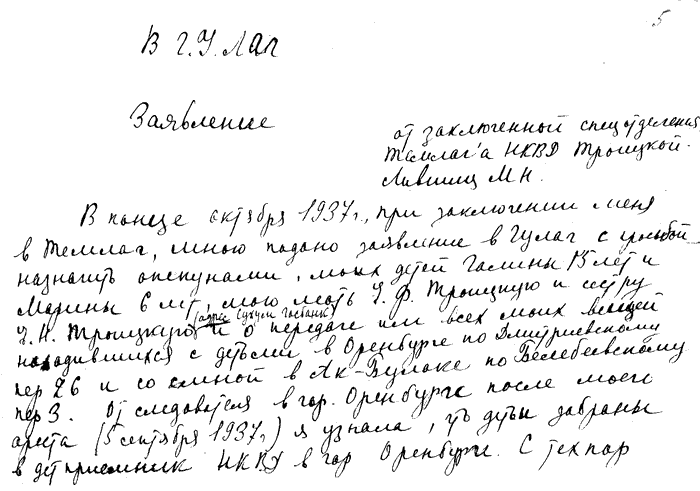 5
В Г.У.Лаг
Заявление
от заключенной спецотделения
Темлаг'а НКВД Троицкой-
Лившиц М Н.
В конце октября 1937г., при заключении меня
в Темлаг, мною подано заявление в Гулаг с просьбой
назначить опекунами, моих детей Галины 15 лет и
Марины 6 лет, мою мать
(адрес Сухум Госбанк)
Н. Троицкую и о передаче им всех моих вещей
находившихся с детьми в Оренбурге по Дмитриевскому
пер 26 и со мной в Ак-Булаке по Белебеевскому
пер 3. От следователя в гор. Оренбурге после моего
ареста (5 сентября 1937г.) я узнала, что дети забраны
в детприемник НКВД в гор Оренбурге. С тех пор